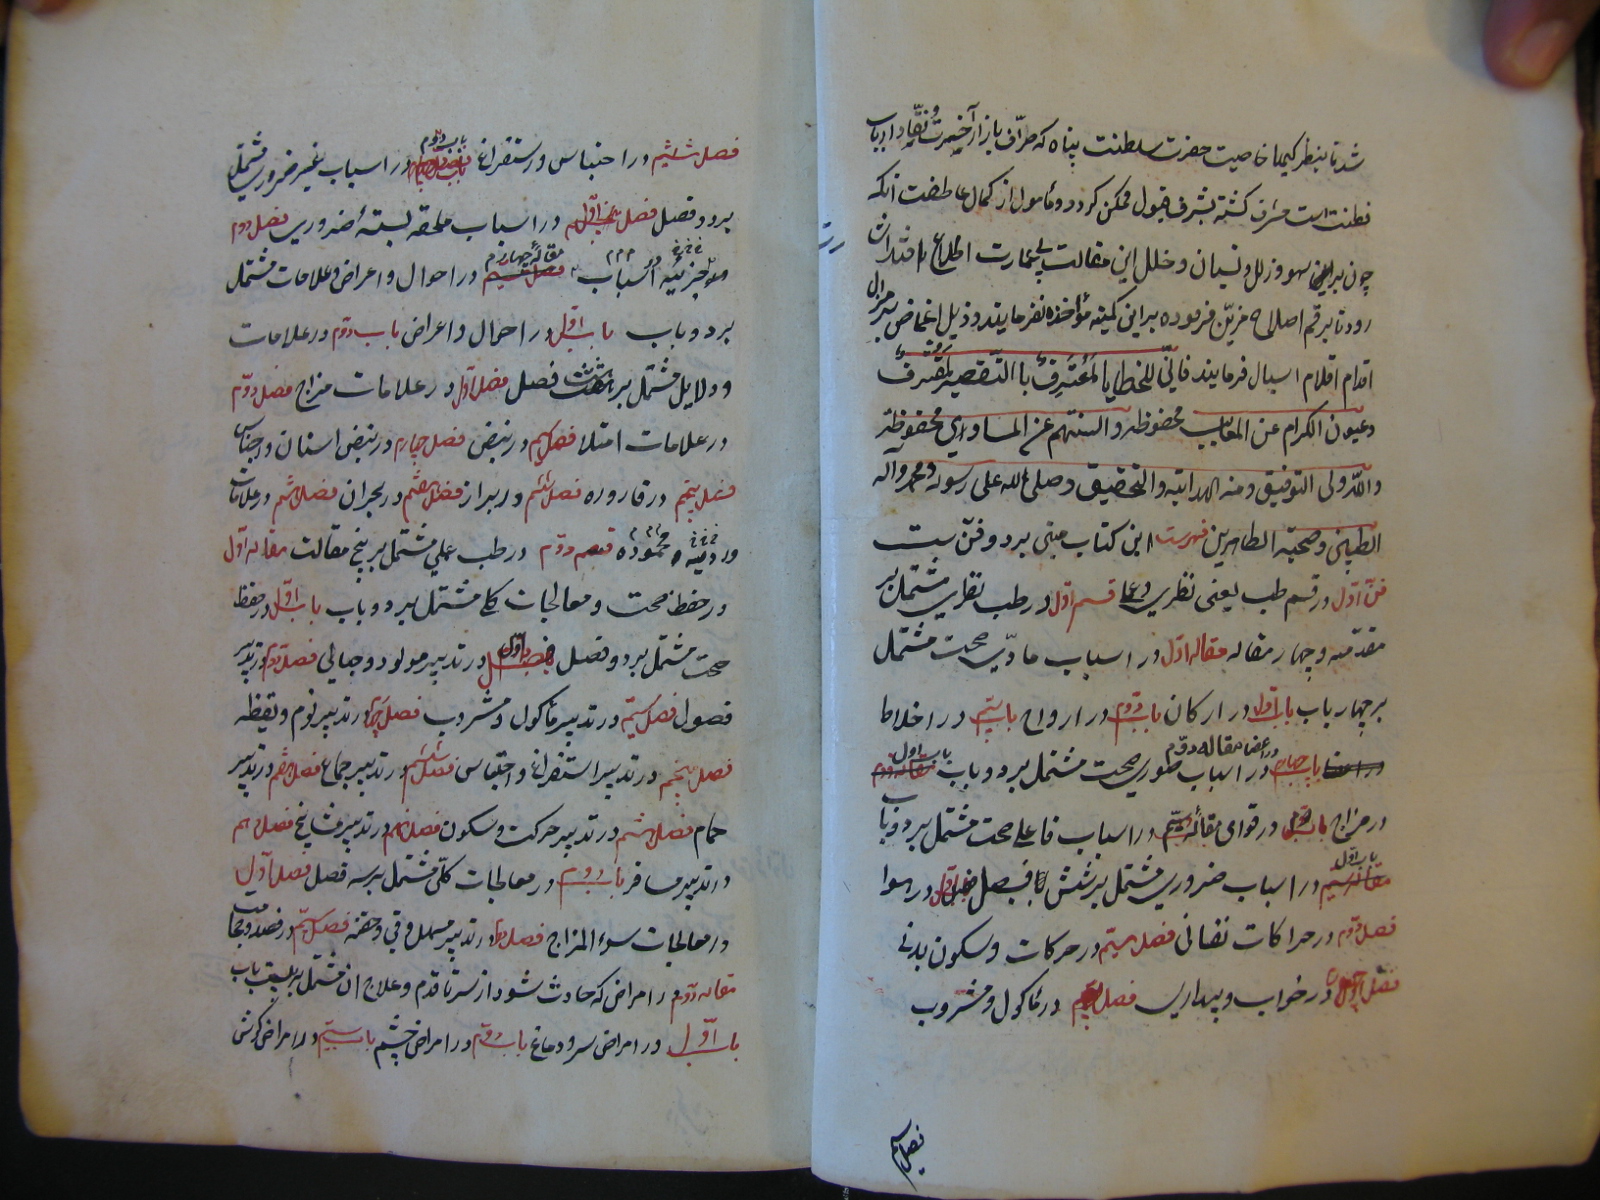 شد تا بنظر کیمیا خاصیت حضرت سلطنت پناه که صرّاف بازار آخرت و نقّاد ارباب
فطنت است مشرف کشته بشرف قبول ممکن کردد و مأمول از کمال عاطفت آنکه
چون براین سهو و زلل و نسیان و خلل این مقالت بی عبارت اطلاع
رود تا برقم اصلاح مزیّن فرموده براین کمینه مؤاخذه نفرمایند و ذیل اغماض بر
اقدام اقلام اسبال فرمایند فانّی للخطایا لمعترف با التقصیر لمقترف
و عیون الکرام عن المعایب محفوظة و السنتهم عن المساوی محفوظة
و اللّه ولی التوفیق و منه الهدایة و التحقیق و صلی الله علی رسوله محمد و آله
الطیبین و صحبه الطاهرین فهرست این کتاب مبنی بر دو فنّ ست
فنّ اوّل در قسم طب یعنی نظری و عملی قسم اوّل در طب نظری مشتمل بر
مقدمه و چهار مقاله مقاله اوّل در اسباب مادّیه صحت مشتمل
بر چهار باب باب اوّل در ارکان باب دوّم در ارواح باب سیّم در اخلاط
باب چهارم در اعضا مقاله دوّم در اسباب صوری صحت مشتمل بر دو باب باب اول
در مزاج باب دوّم در قوای مقاله سیّم در اسباب فاعلی صحت مشتمل بر دو باب
باب اوّل در اسباب ضروری مشتمل بر شش فصل فصل اوّل در هوا
فصل دوّم در حراکات نفسانی فصل سیّم در حرکات و سکون بدنی
فصل چهارم در خواب و بیداری فصل پنجم در مأکول و مشروب
فصل ششم
فصل ششم در احتباس و استفراغ باب دوّم در اسباب غیر ضروری مشتمل
بر دو فصل فصل اوّل در اسباب ملحقه بستهٔ ضروری فصل دوم
در اسباب مقاله چهارم در احوال و اعراض و علامات مشتمل
بر دو باب باب اوّل در احوال و اعراض باب دوّم در علامات
و دلایل مشتمل بر هشت فصل فصل اوّل در علامات مزاج فصل دوّم
در علامات امتلا فصل سیّم در نبض فصل چهارم در نبض اسنان و اجناس
فصل پنجم در قاروره فصل ششم در براز فصل هفتم در بحران فصل هشتم در علامات
محموده قسم دوّم در طب عملی مشتمل بر پنج مقالت مقاله اوّل
در حفظ صحت و معالجات کلی مشتمل بر دو باب باب اوّل در حفظ
صحت مشتمل بر ده فصل فصل اوّل در تدبیر مولود و حبالی فصل دوّم در تدبیر
فصول فصل سیّم در تدبیر مأکول و مشروب فصل چهارم در تدبیر نوم و یقظه
فصل پنجم در تدبیر استفراغ و احتباس فصل ششم در تدبیر جماع فصل هفتم در تدبیر
حمام فصل هشتم در تدبیر حرکت و سکون فصل نهم در تدبیر مشایخ فصل دهم
در تدبیر مسافر باب دوم در معالجات کلّی مشتمل بر سه فصل فصل اوّل
در معالجات سوء المزاج فصل دوّم در تدبیر مسهل و قی و حقنه فصل سیّم در فصد و حجامت
مقاله دوّم در امراض که حادث شود از سر تا قدم و علاج آن مشتمل بر باب
باب اوّل در امراض سر و دماغ باب دوّم در امراض چشم باب سیّم در امراض کوش